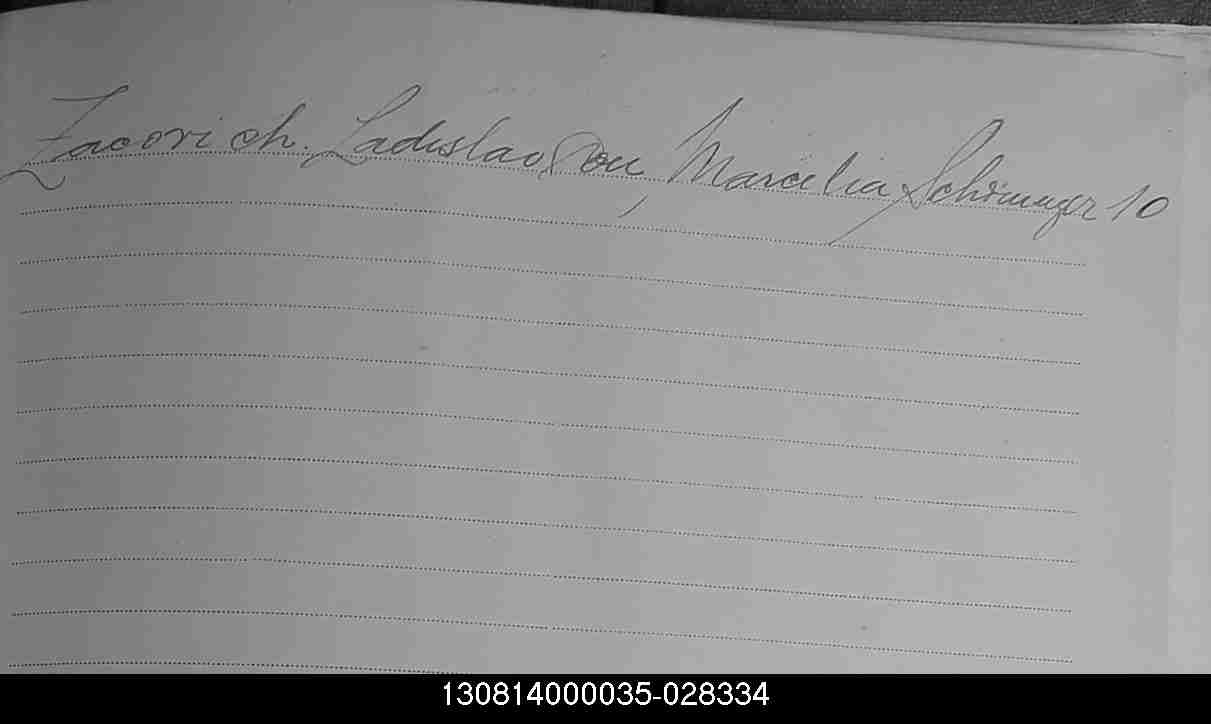 Zacovich. Ladislao con Marcelia Schirmayer 10
130814000035-028334